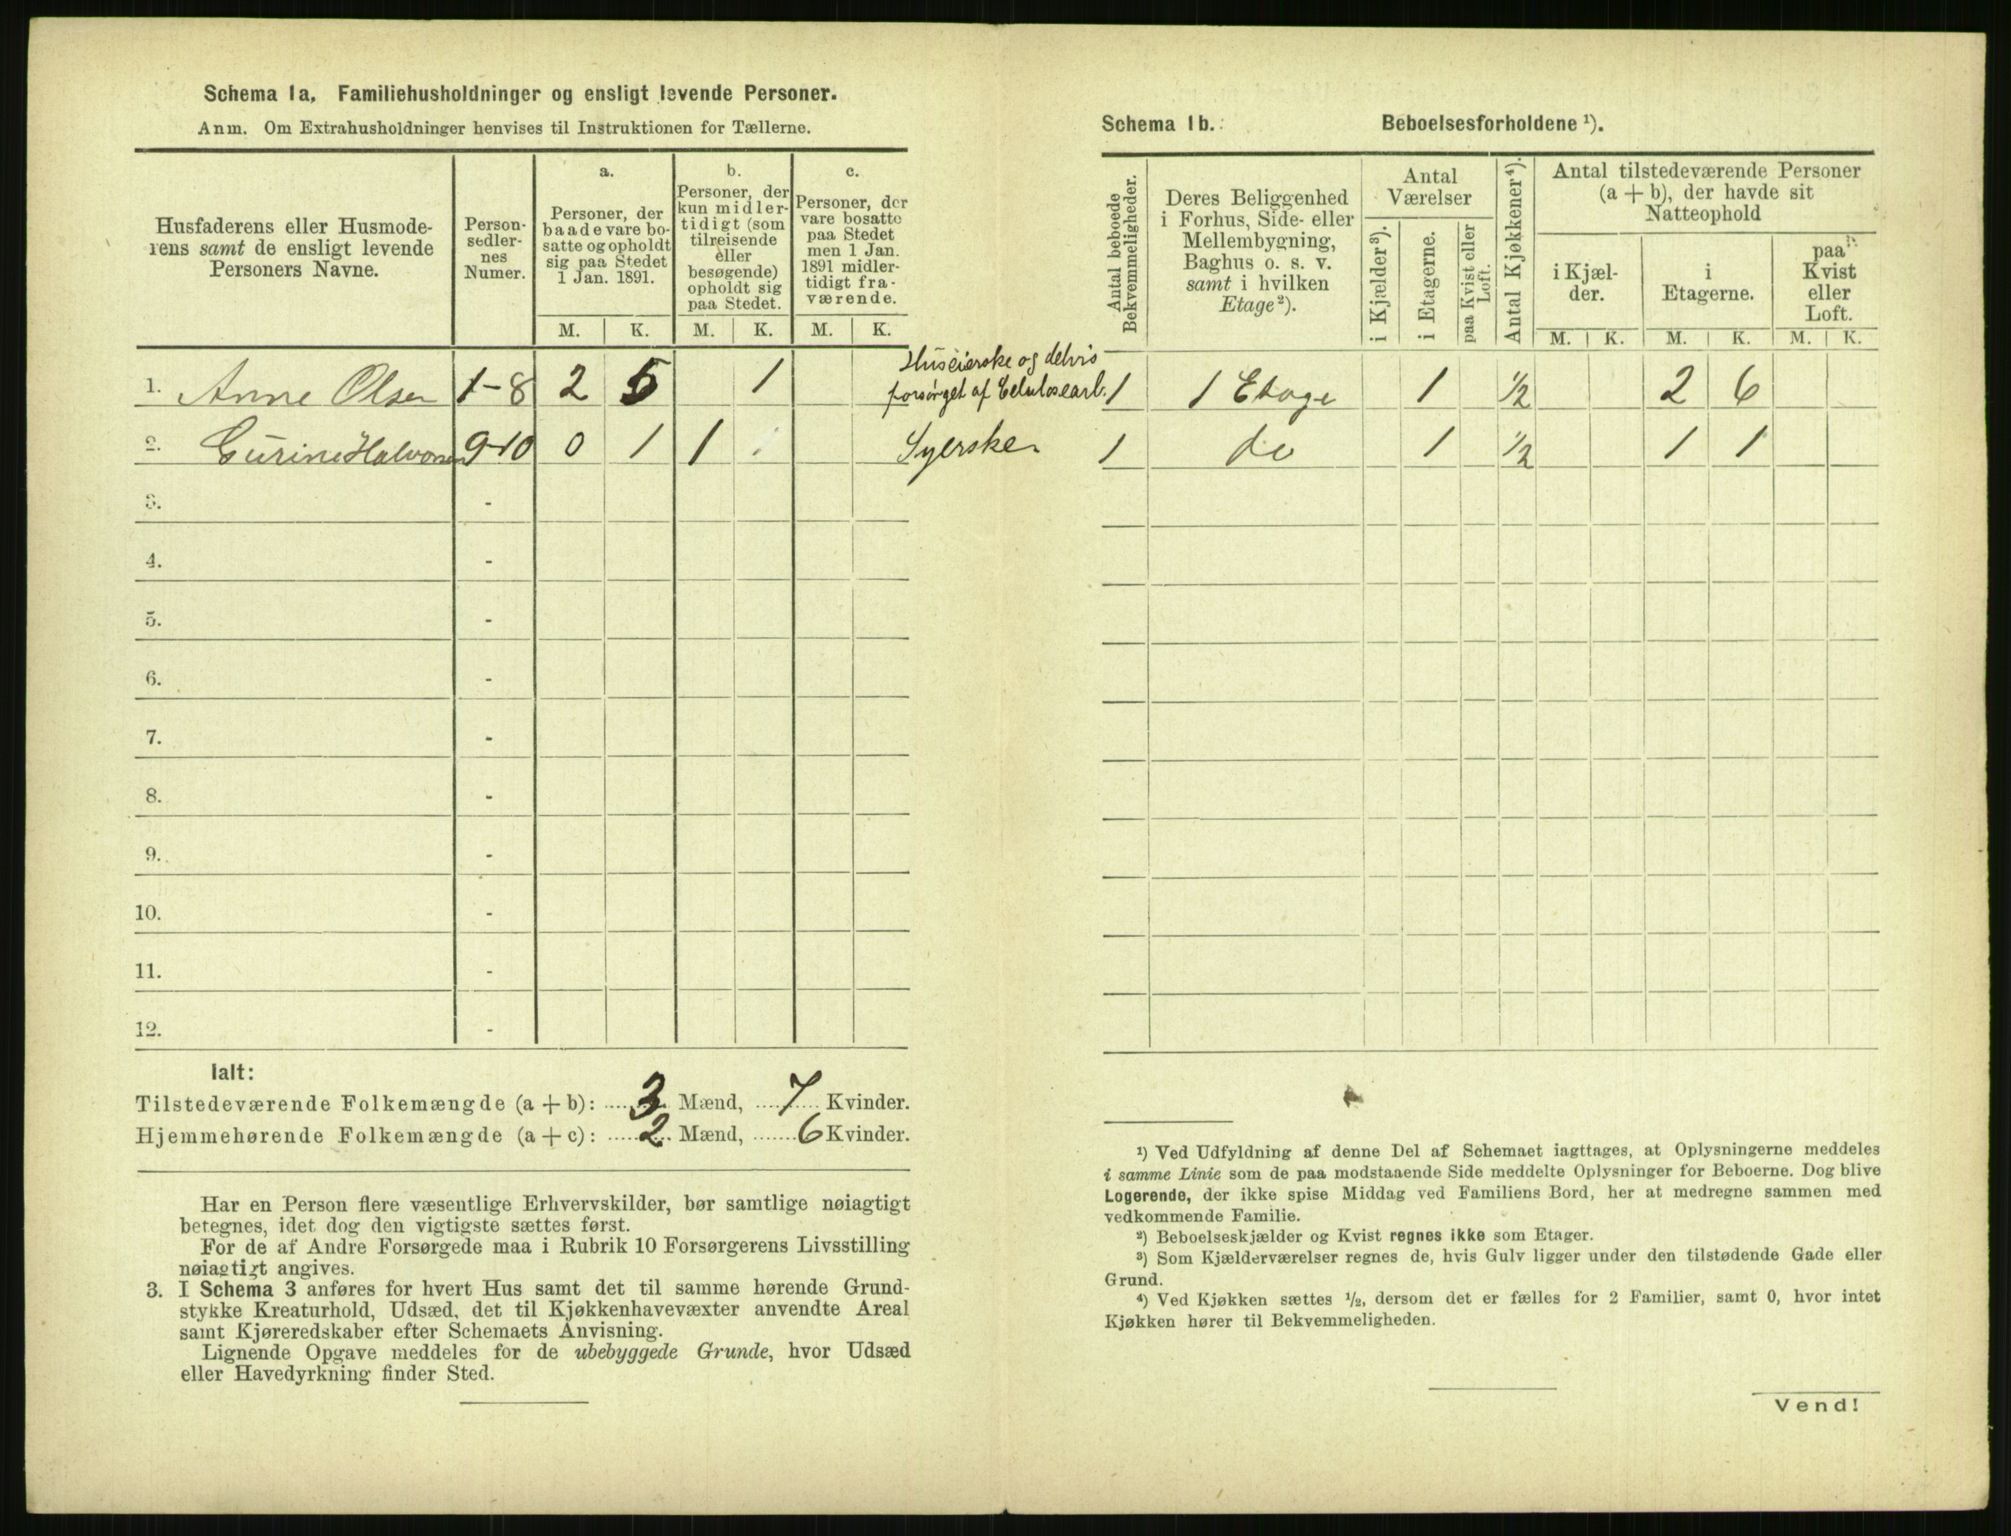 Schema 1a. Familiehusholdninger og ensligt levende Personer.
Anm. Om Extrahusholdninger henvises til Instruktionen for Tællerne.
Husfaderens eller Husmode-
rens samt de ensligt levende
Personers Navne.
Person-
sedler-
nes
Numer.
a.
Personer, der
baade vare bo-
satte og opholdt
sig paa Stedet
1 Jan. 1891.
b.
Personer, der
kun midler-
tidigt (som
tilreisende
eller
besøgende)
opholdt sig
paa Stedet.
c.
Personer, der
vare bosatte
paa Stedet
men 1 Jan.
1891 midler-
tidigt fra-
værende.
M. K. M. K. M. K.
1. Anne Olsen 1-8 2 5 1 Huseierske og delvis
forsørget af Celulosearb.
2. Gurine Halvorsen 9-10 0 1 1 Syerske
3. -
4. -
5. -
6. -
7. -
8. -
9. -
10. -
11. -
12. -
Ialt:
Tilstedeværende Folkemængde (a + b): 3 Mænd, 7 Kvinder.
Hjemmehørende Folkemængde (a + c): 2 Mænd, 6 Kvinder.
Har en Person flere væsentlige Erhvervskilder, bør samtlige nøiagtigt
betegnes, idet dog den vigtigste sættes først.
For de af Andre Forsørgede maa i Rubrik 10 Forsørgerens Livsstilling
nøiagtigt angives.
3. I Schema 3 anføres for hvert Hus samt det til samme hørende Grund-
stykke Kreaturhold, Udsæd, det til Kjøkkenhavevæxter anvendte Areal
samt Kjøreredskaber efter Schemaets Anvisning.
Lignende Opgave meddeles for de ubebyggede Grunde, hvor Udsæd
eller Havedyrkning finder Sted.
Schema 1b. Beboelsesforholdene ¹).
Antal beboede
Bekvemmeligheder.
Deres Beliggenhed
i Forhus, Side- eller
Mellembygning,
Baghus o. s. v.
samt i hvilken
Etage²).
Antal
Værelser
i Kjælder³).
i Etagerne.
paa Kvist eller
Loft.
Antal Kjøkkener⁴).
Antal tilstedeværende Personer
(a + b), der havde sit
Natteophold
i Kjæl-
der.
i
Etagerne.
paa
Kvist
eller
Loft.
M. K. M. K. M. K.
1 1 Etage 1 ½ 2 6
1 do 1 ½ 1 1
¹) Ved Udfyldning af denne Del af Schemaet iagttages, at Oplysningerne meddeles
i samme Linie som de paa modstaaende Side meddelte Oplysninger for Beboerne. Dog blive
Logerende, der ikke spise Middag ved Familiens Bord, her at medregne sammen med
vedkommende Familie.
²) Beboelseskjælder og Kvist regnes ikke som Etager.
³) Som Kjælderværelser regnes de, hvis Gulv ligger under den tilstødende Gade eller
Grund.
⁴) Ved Kjøkken sættes ½, dersom det er fælles for 2 Familier, samt 0, hvor intet
Kjøkken hører til Bekvemmeligheden.
Vend!